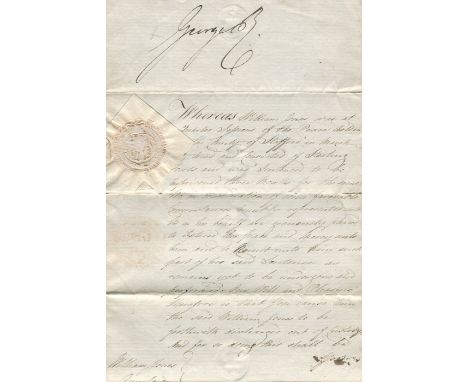 George R.
Whereas William Jones was at
Quarter Sessions of the Peace holden
County of Stafford in
and Convicted of Stealing
and was Sentenced to be
three
In consideration of some favorable
circumstances humbly represented unto
us in his behalf We are graciously pleased
to Extend Our Grace and Mercy unto
him and to Remit unto him such
part of his said Sentence as
remains yet to be undergone and
performed Our Will and Pleasure
therefore is that you cause him
the said William Jones to be
forthwith discharged out of Custody
And for so doing this shall be
William Jones